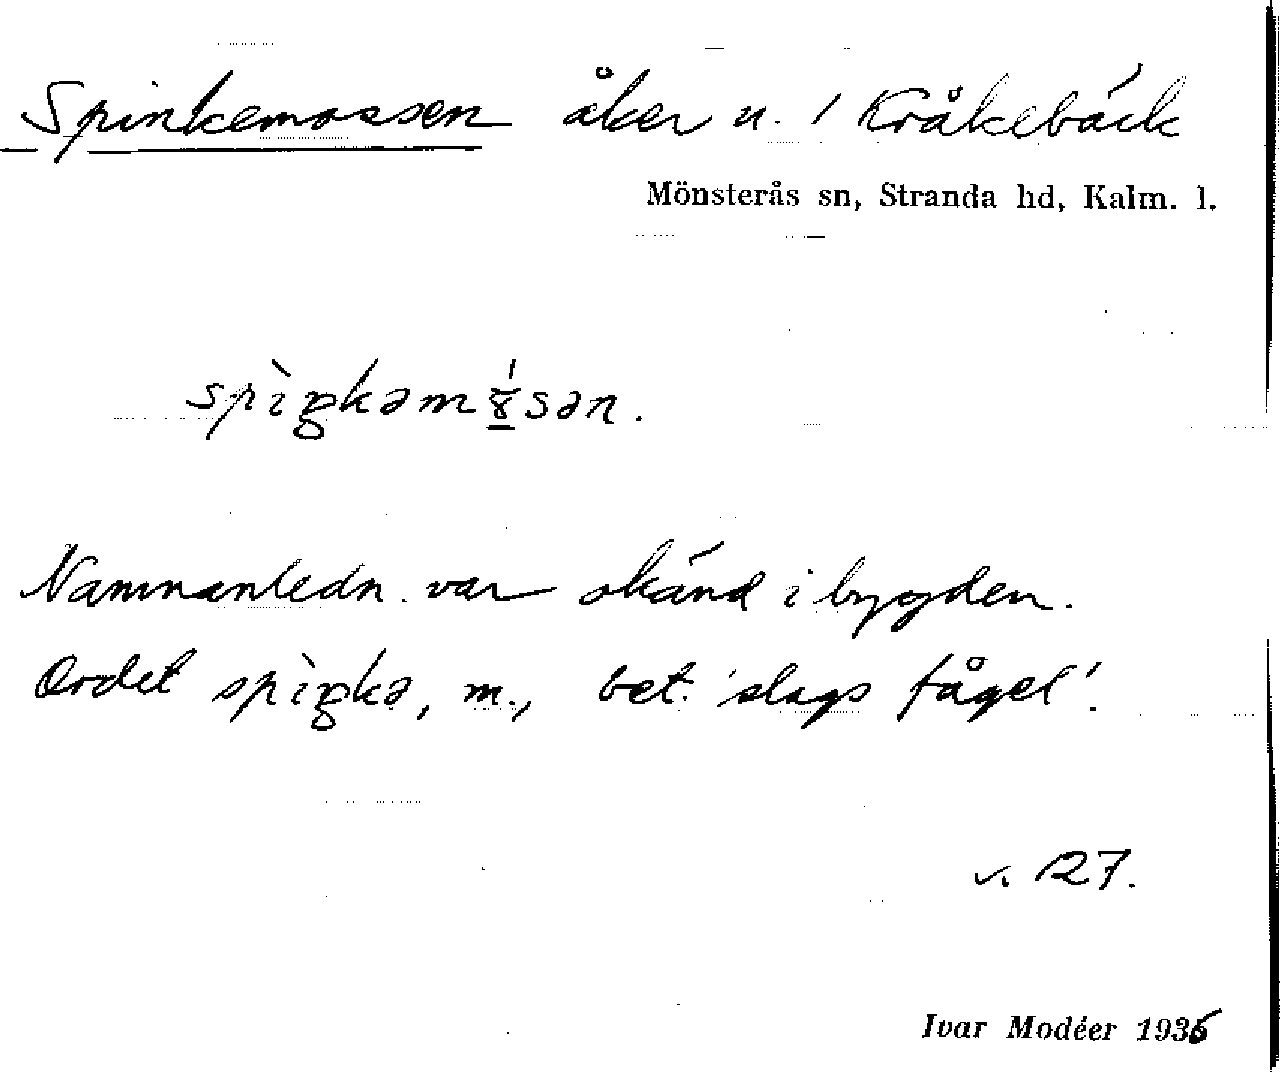 Spinkemossen åker u. / Kråkebäck
Mönsterås sn, Stranda hd, Kalm. l.
spìŋkəm8̲́sən.
Namnanledn. var okänd i bygden.
Ordet spìŋkə, m., bet. 'slags fågel'.
v. 127.
Ivar Modéer 1936